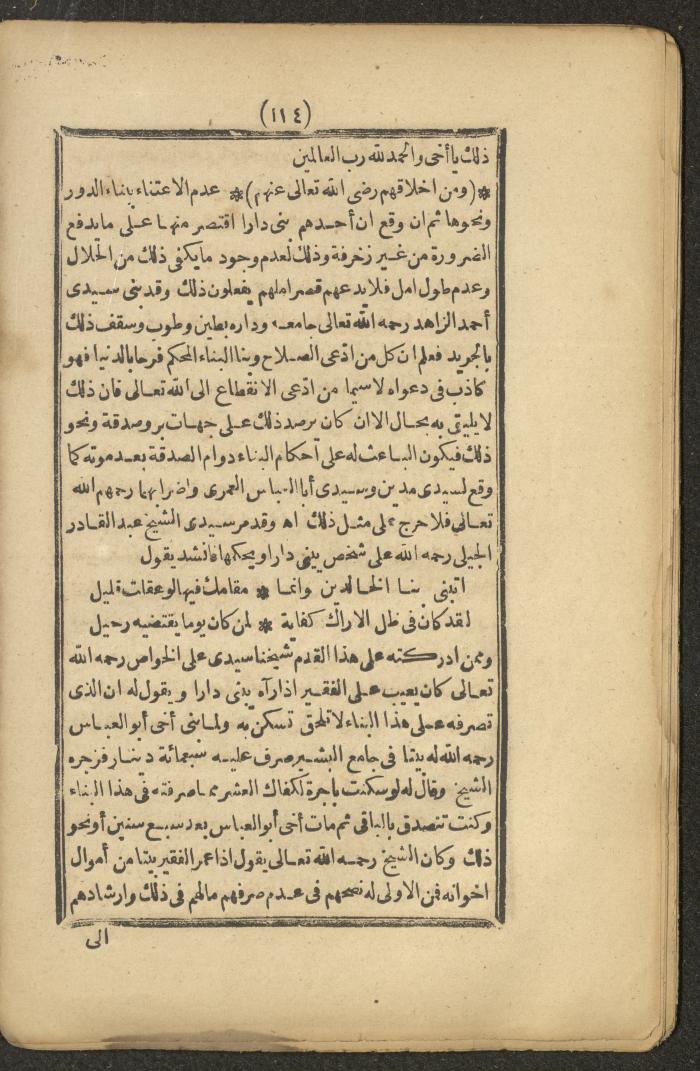 (١١٤)
ذلك يا أخى والحمد لله رب العالمين
*(ومن اخلاقهم رضى الله تعالى عنهم)* عدم الاعتناء ببناء الدور
ونحوها ثم ان وقع ان أحدهم بنى دارا اقتصر منها على ما يدفع
الضرورة من غير زخرفة وذلك لعدم وجود ما يكفى ذلك من الحلال
وعدم طول امل فلا يدعهم قصر املهم يفعلون ذلك وقد بنى سيدى
أحمد الزاهد رحمه الله تعالى جامعه وداره بطين وطوب وسقف ذلك
بالجريد فعلم ان كل من ادعى الصلاح وبنا البناء المحكم فرحا بالدنيا فهو
كاذب فى دعواه لاسيما من ادعى الانقطاع الى الله تعالى فان ذلك
لا يليق به بحال الا ان كان يرصد ذلك على جهات بر وصدقة ونحو
ذلك فيكون الباعث له على أحكام البناء دوام الصدقة بعد موته كما
وقع لسيدى مدين وسيدى أبا العباس الغمرى واضرابهما رحمهم الله
تعالى فلا حرج على مثل ذلك اه وقد مر سيدى الشيخ عبد القادر
الجيلى رحمه الله على شخص يبنى دارا ويحكمها فانشد يقول
اتبنى بنا الخالدين وانما * مقامك فيها لو عقلت قليل
لقد كان فى ظل الاراك كفاية * لمن كان يوما يقتضيه رحيل
وممن ادركته على هذا القدم شيخنا سيدى على الخواص رحمه الله
تعالى كان يعيب على الفقير اذا رآه يبنى دارا ويقول له ان الذى
تصرفه على هذا البناء لا تلحق تسكن به ولما بنى أخى أبو العباس
رحمه الله له بيتا فى جامع البشير صرف عليه سبعمائة دينار فزجره
الشيخ وقال له لو سكنت باجرة لكفاك العشر مما صرفته فى هذا البناء
وكنت تتصدق بالباقى ثم مات أخى أبو العباس بعد سبع سنين أو نحو
ذلك وكان الشيخ رحمه الله تعالى يقول اذا عمر الفقير بيتا من أموال
اخوانه فمن الاولى له نصحهم فى عدم صرفهم مالهم فى ذلك وارشادهم
الى